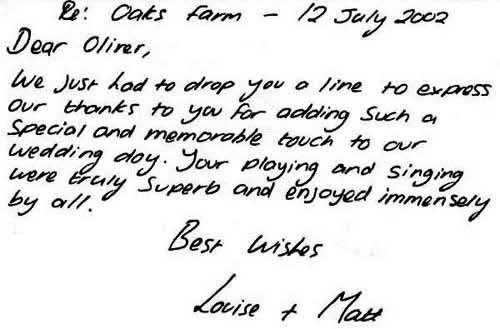 Re: Oaks Farm - 12 July 2002
Dear Oliver,
We just had to drop you a line to express
our thanks to you for adding such a
special and memorable touch to our
wedding day. Your playing and singing
were truly superb and enjoyed immensely
by all.
Best Wishes
Louise + Matt